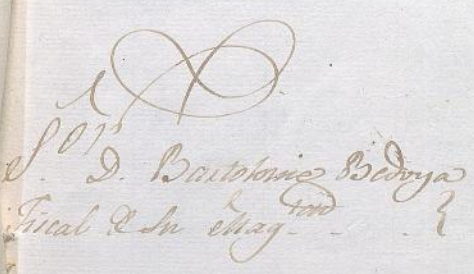 Sor
D. Bartolome Bedoya
Fiscal de Su Magtad